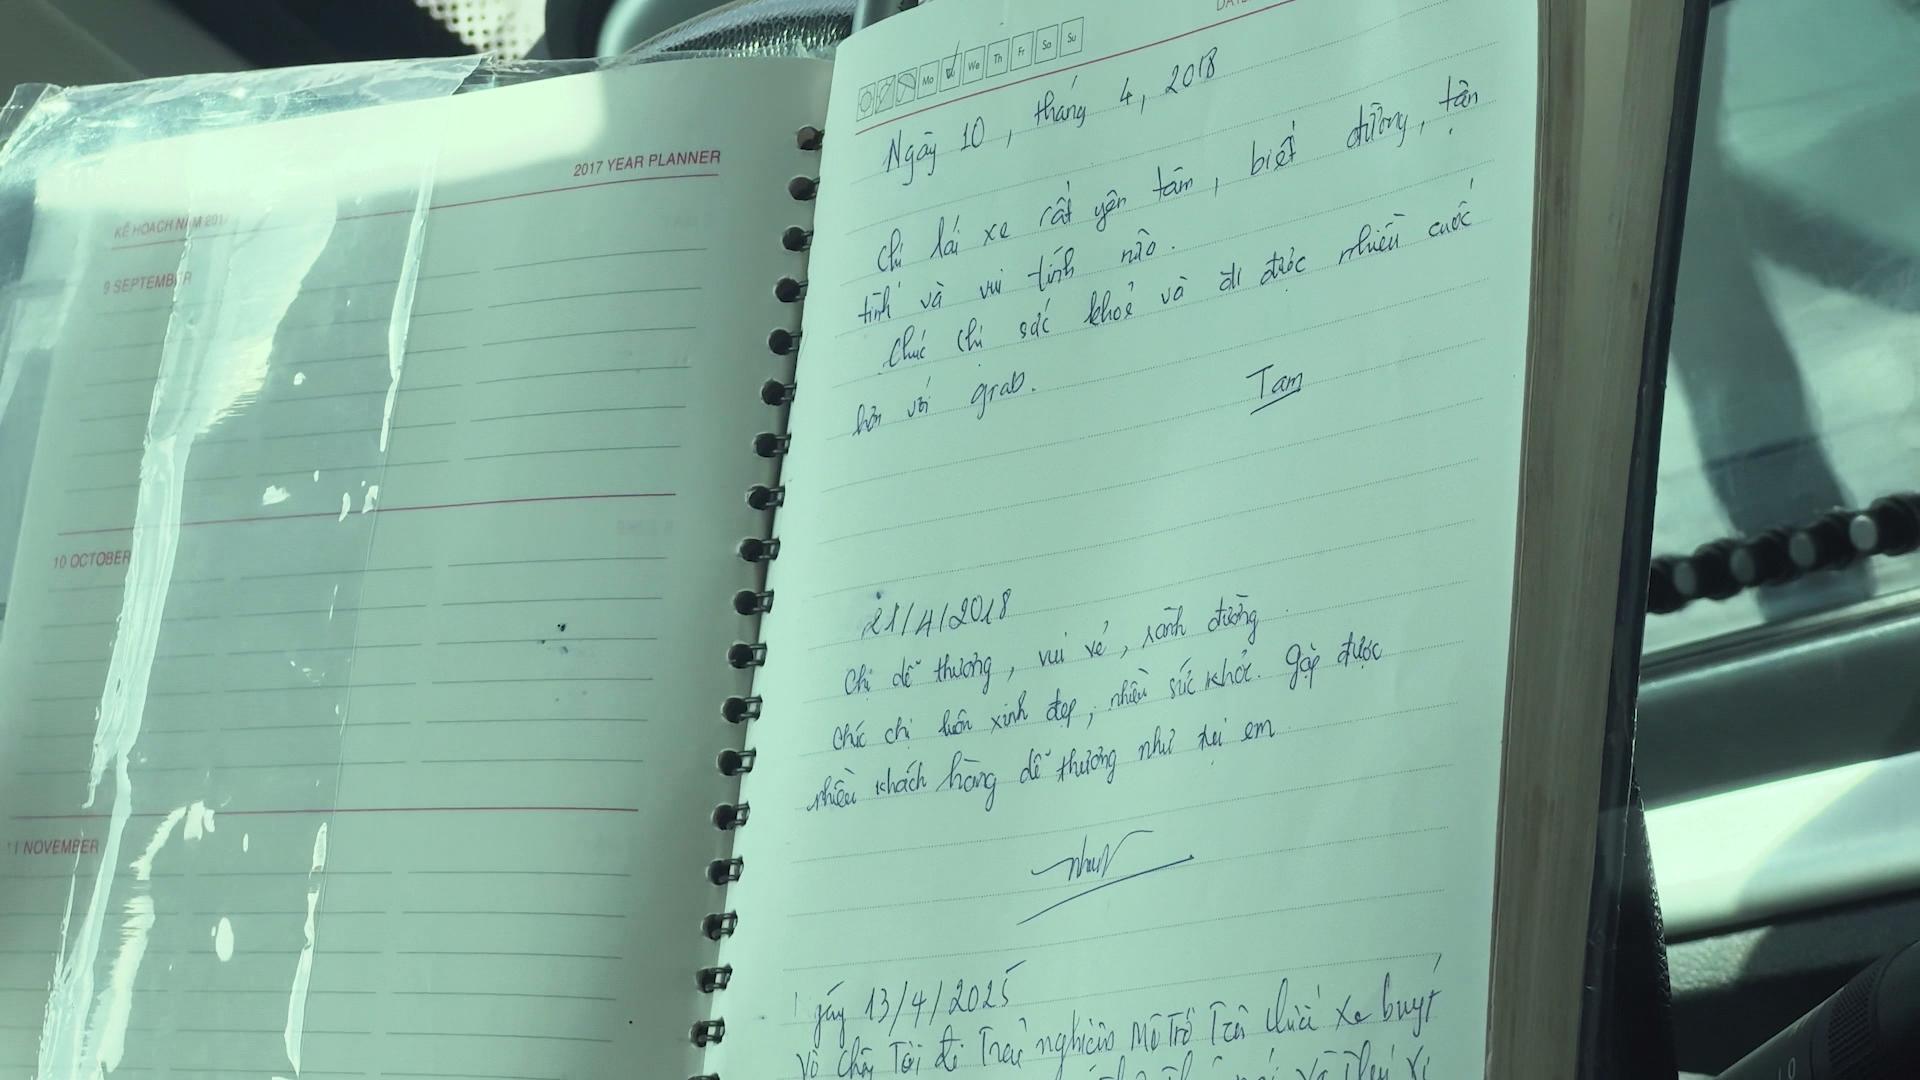 2017 YEAR PLANNER
KẾ HOẠCH NĂM 2017
9 SEPTEMBER
10 OCTOBER
11 NOVEMBER
Mo Tu We Th Fr Sa Su
Ngày 10, tháng 4, 2018
Chị lái xe rất yên tâm, biết đường, tận
tình và vui tính nữa.
Chúc chị sức khoẻ và đi được nhiều cuốc
hơn với grab.
Tam
21/4/2018
Chị dễ thương, vui vẻ, rành đường
Chúc chị luôn xinh đẹp, nhiều sức khỏe. Gặp được
nhiều khách hàng dễ thương như tụi em
Như
gáy 13/4/2025
Vô Chồng Tôi đi Trải nghiệm Mê Trô Trên chuến xe buýt